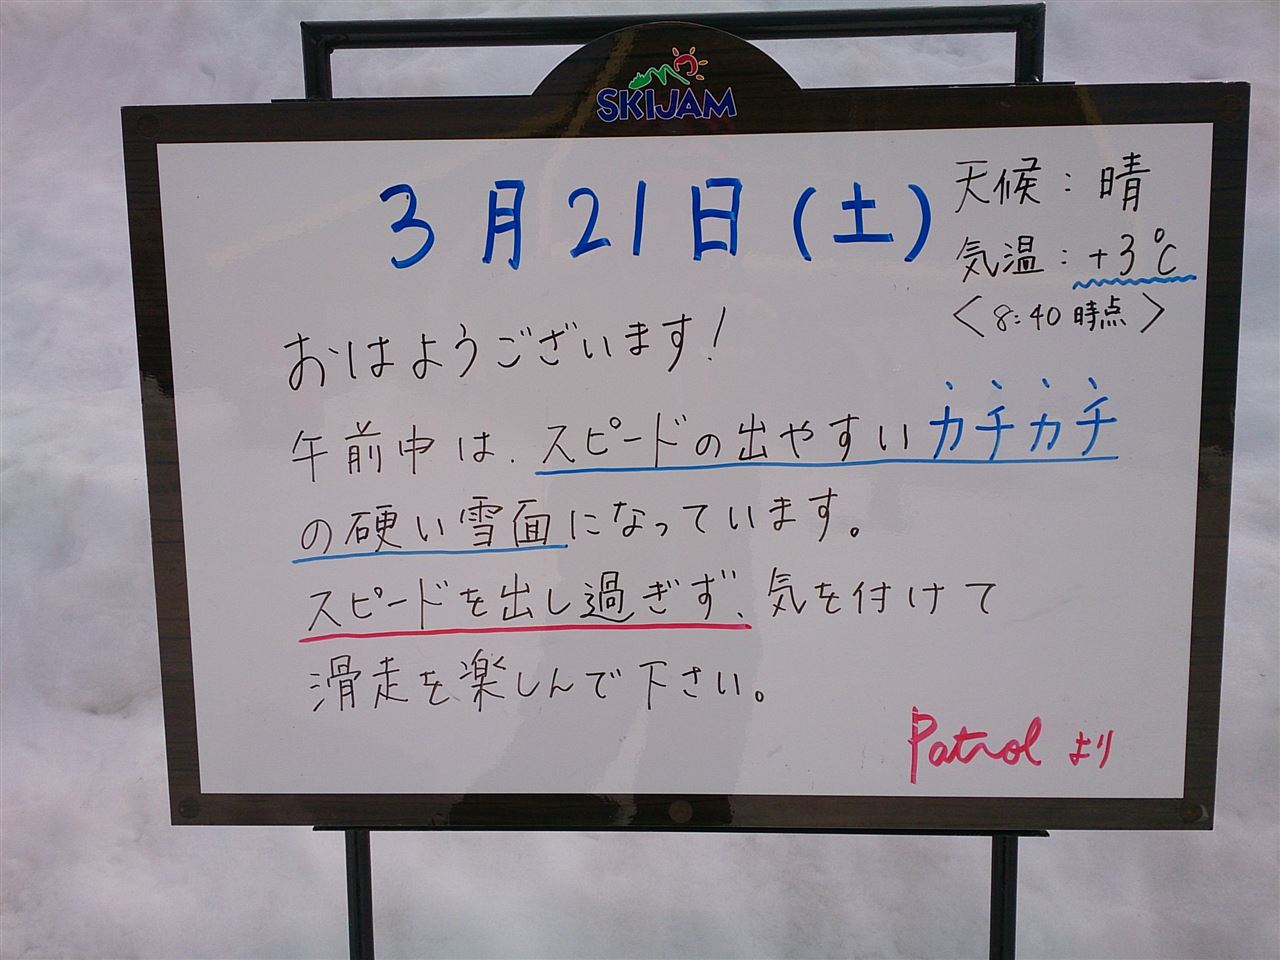 SKIJAM
3月21日(土)
天候:晴
気温:+3℃
〈8:40時点〉
おはようございます!
午前中は、スピードの出やすいカチカチ
の硬い雪面になっています。
スピードを出し過ぎず、気を付けて
滑走を楽しんで下さい。
Patrolより